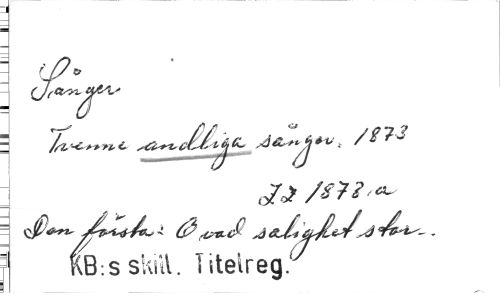 Sånger
Tvenne andliga sånger. 1873
ZZ 1873.a
Den första: O vad salighet stor..
KB:s skill. Titelreg.